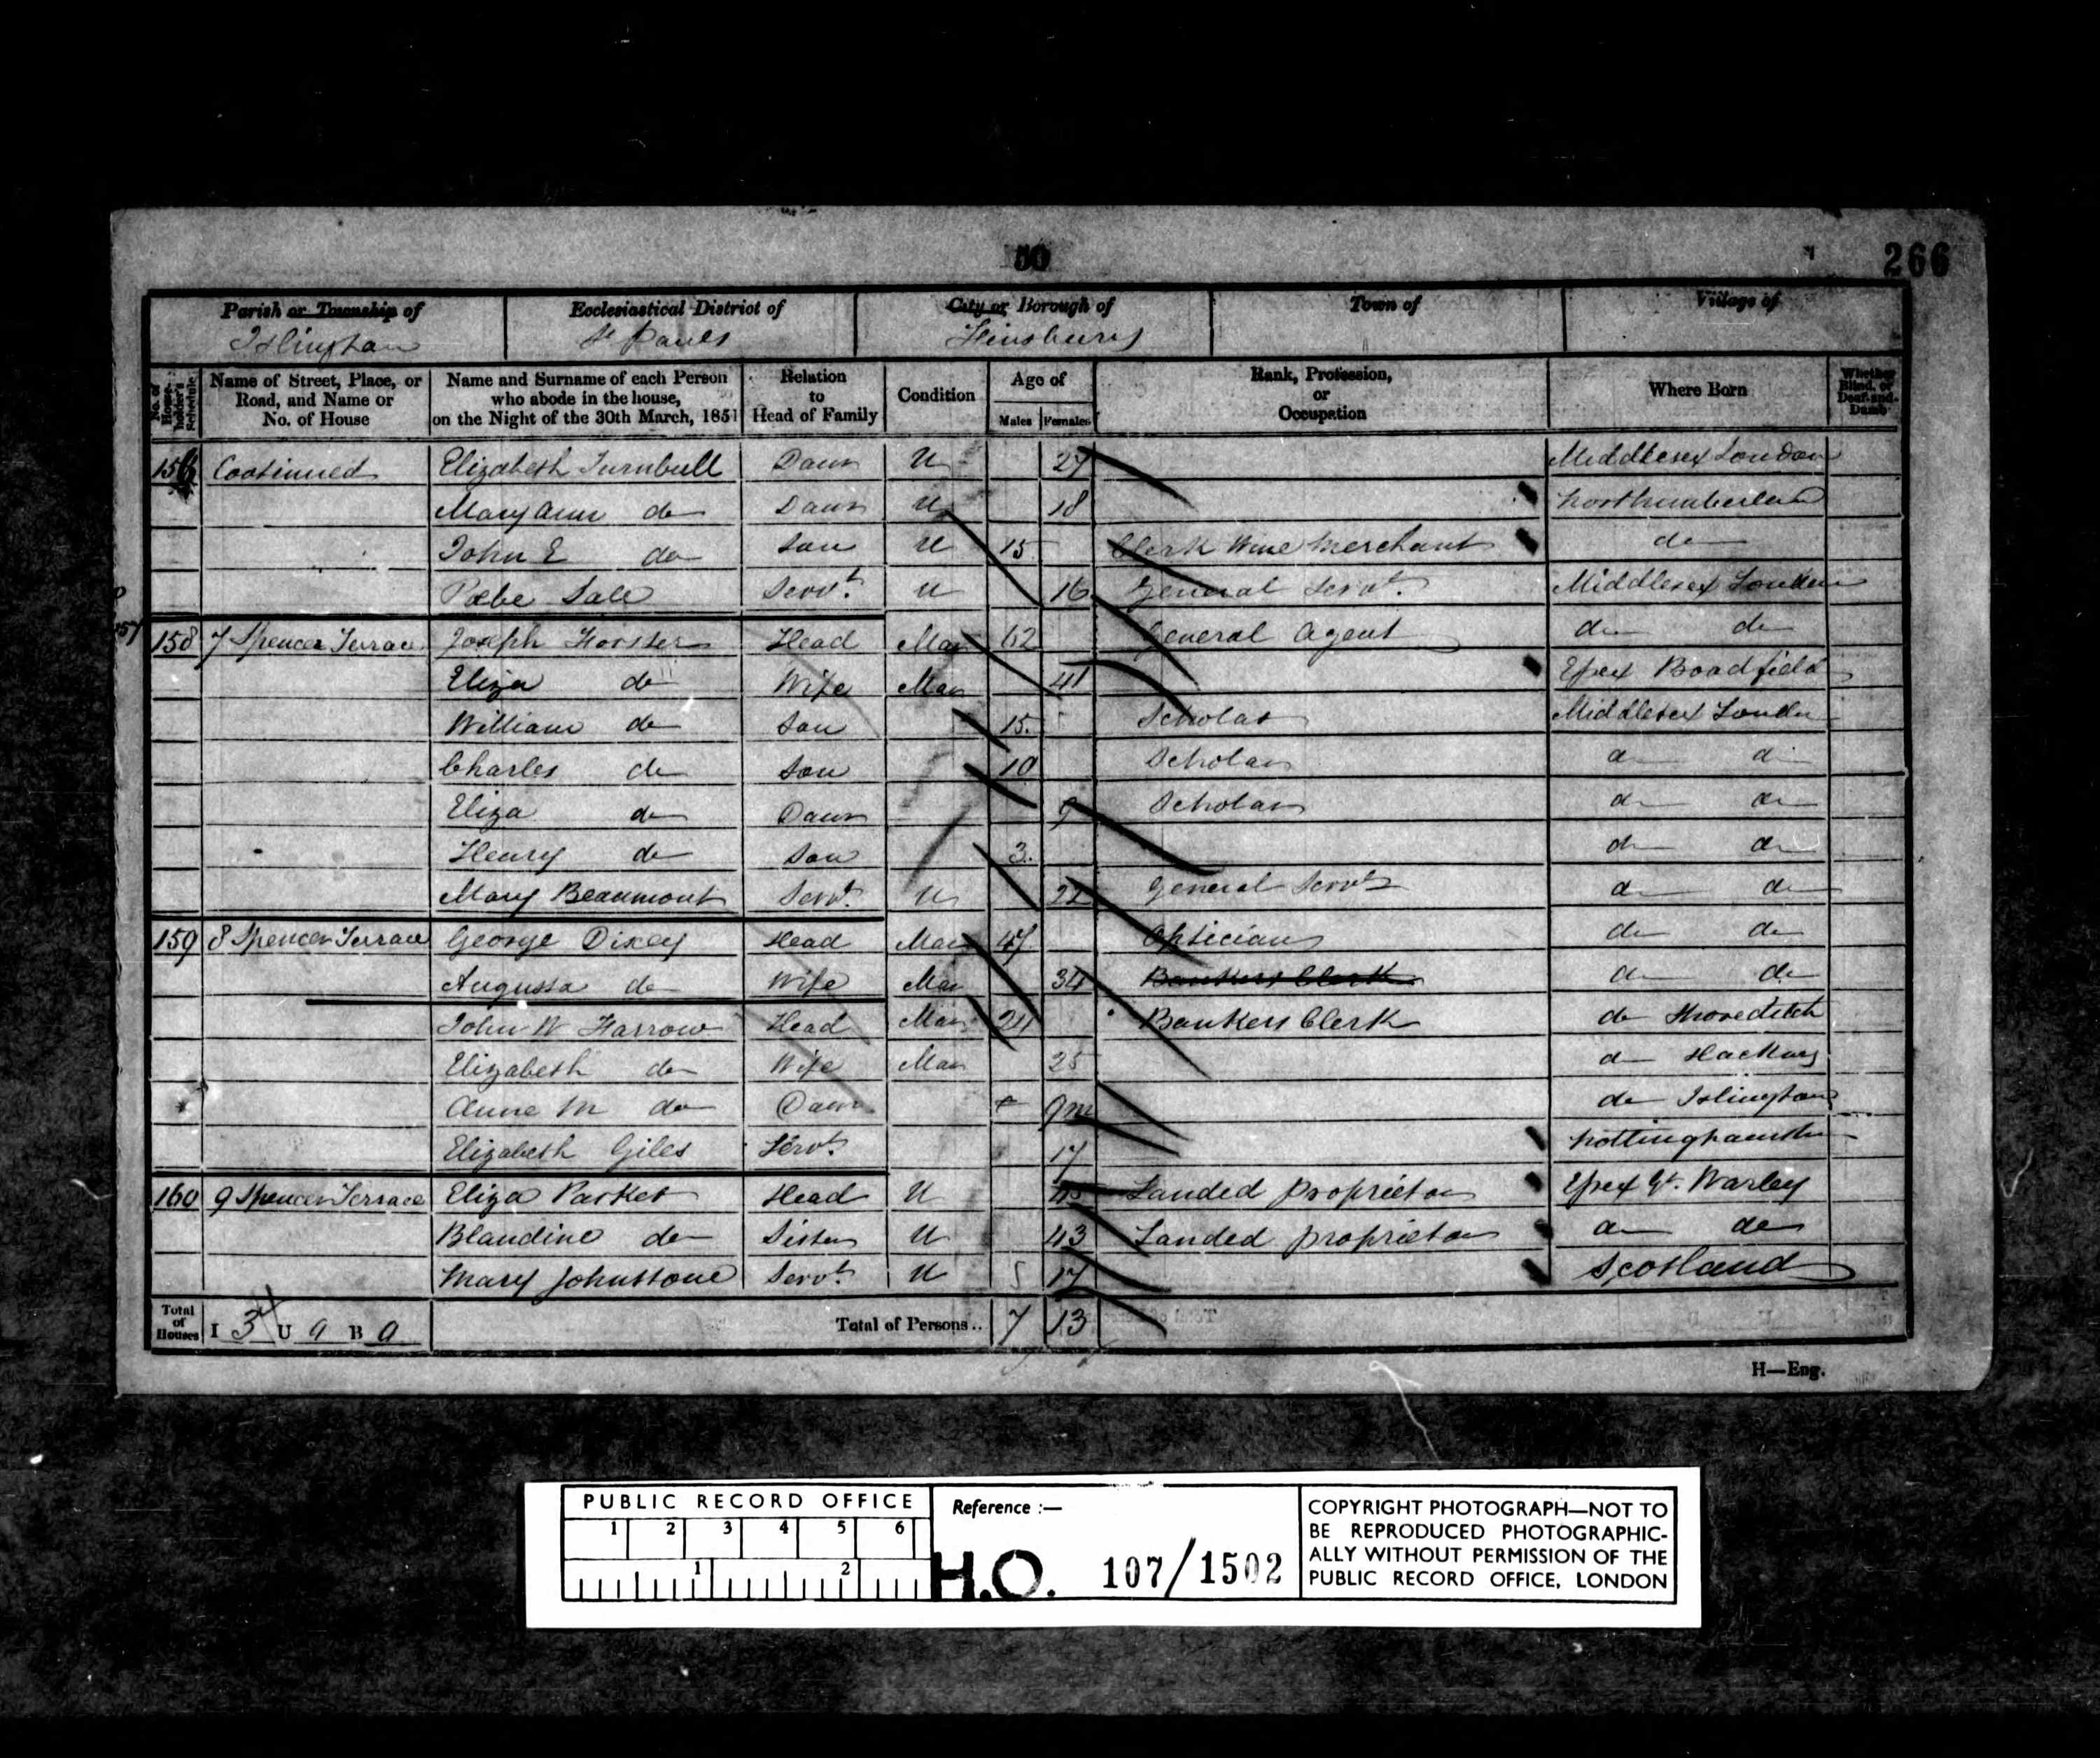 50
266
Parish or Township of Ecclesiastical District of City or Borough of Town of Village of
Islington St Pauls Finsbury
No. of House-holder's Schedule Name of Street, Place, or Road, and Name or No. of House Name and Surname of each Person who abode in the house, on the Night of the 30th March, 1851 Relation to Head of Family Condition Age of Males Females Rank, Profession, or Occupation Where Born Whether Blind, or Deaf-and-Dumb
156 Continued Elizabeth Turnbull Daur U 27 Middlesex London
Mary Ann do Daur U 18 Northumberland
John E do Son U 15 Clerk Wine Merchant do
Pœbe Sale Servt. U 16 General Servt. Middlesex London
157
158 7 Spencer Terrace Joseph Forster Head Mar 62 General Agent do do
Eliza do Wife Mar 41 Essex Boadfield
William do Son 15 Scholar Middlesex London
Charles do Son 10 Scholar do do
Eliza do Daur 9 Scholar do do
Henry do Son 3 do do
Mary Beaumont Servt. U 22 General Servt do do
159 8 Spencer Terrace George Dixey Head Mar 47 Optician do do
Augusta do Wife Mar 34 Bankers Clerk do do
John W Farrow Head Mar 24 Bankers Clerk do Shoreditch
Elizabeth do Wife Mar 25 do Hackney
Anne M do Daur 9m do Islington
Elizabeth Giles Servt. 17 Nottinghamshr
160 9 Spencer Terrace Eliza Parker Head U 45 Landed Proprietor Essex Gt. Warley
Blandine do Sister U 43 Landed proprietor do do
Mary Johnstone Servt. U 17 Scotland
Total of Houses I 3 U 0 B 0 Total of Persons.. 7 13
H—Eng.
PUBLIC RECORD OFFICE
1 2 3 4 5 6
1 2
Reference :—
H.O. 107/1502
COPYRIGHT PHOTOGRAPH—NOT TO
BE REPRODUCED PHOTOGRAPHIC-
ALLY WITHOUT PERMISSION OF THE
PUBLIC RECORD OFFICE, LONDON